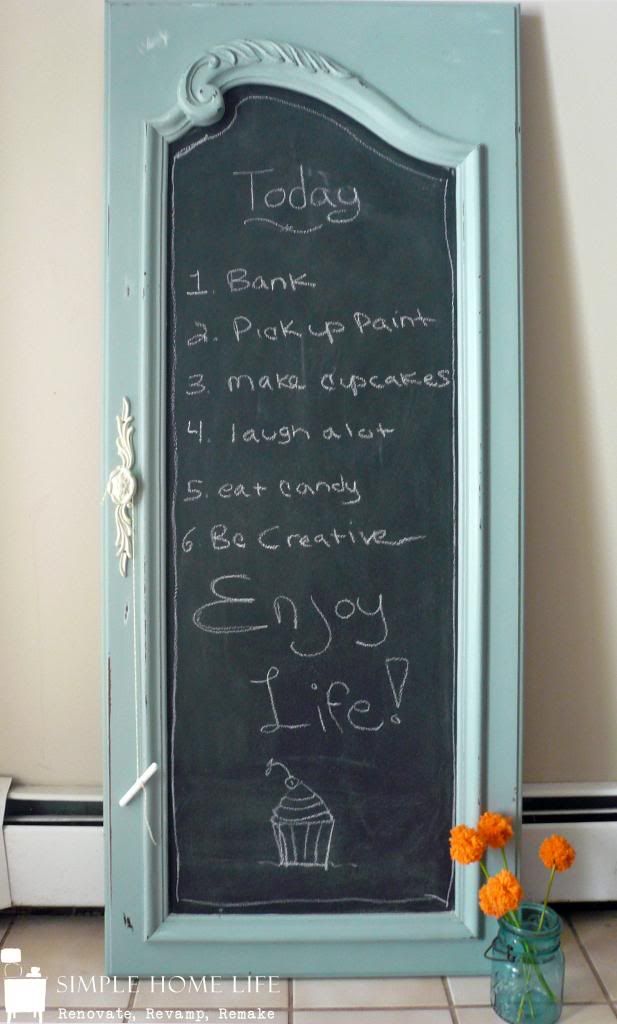 Today
1. Bank
2. Pick up Paint
3. make cupcakes
4. laugh a lot
5. eat candy
6 Be Creative
Enjoy
Life!
SIMPLE HOME LIFE
Renovate, Revamp, Remake